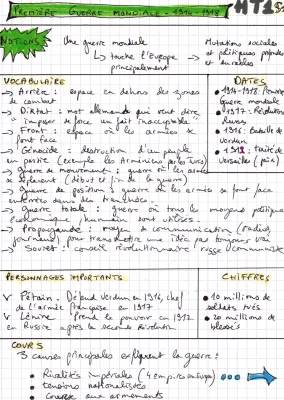 PREMIÈRE GUERRE MONDIALE - 1914-1918
HT1
NOTIONS
Une guerre mondiale
↳ touche l'Europe
principalement
Mutations sociales
et politiques profondes
et durables
VOCABULAIRE
→ Arrière : espace en dehors des zones
de combat
→ Diktat : mot allemand qui veut dire
imposer de force un fait inacceptable
→ Front : espace où les armées se
font face
→ Génocide : destruction d'un peuple
en partie (exemple les Arméniens par les Turcs)
→ guerre de mouvement : guerre où les armées
se déplacent (début et fin de la guerre)
→ guerre de position : guerre où les armées se font face
enterrées dans des tranchées.
→ guerre totale : guerre où tous les moyens politiques
économiques, humains sont utilisés.
→ Propagande : moyen de communication (radios,
journaux) pour transmettre une idée pas toujours vraie
→ Soviet : conseil révolutionnaire russe communiste
DATES
• 1914-1918 : Première
Guerre mondiale
• 1917 : Révolution
Russe
• 1916 : Bataille de
Verdun
• : traité de
Versailles (paix)
PERSONNAGES IMPORTANTS
V Pétain : Défend Verdun en 1916, chef
de l'armée française en 1917
V Lénine : Prend le pouvoir en 1917
en Russie après la seconde Révolution.
CHIFFRES
• 10 millions de
soldats tués
• 20 millions de
blessés
COURS
3 causes principales expliquent la guerre :
• Rivalités impériales (4 empires en Europe)
• tensions nationalistes
• Course aux armements